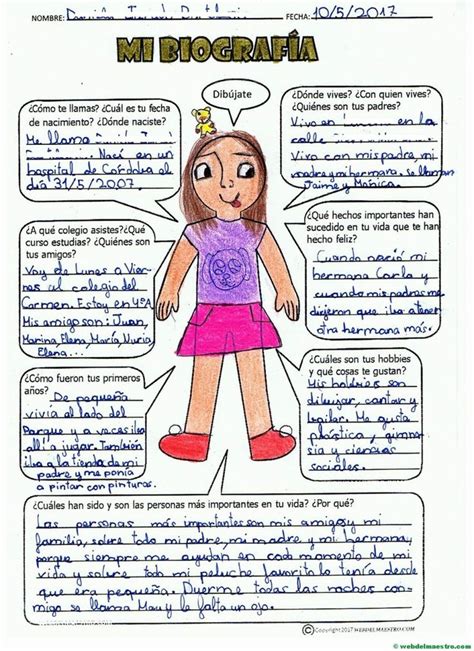 NOMBRE:
FECHA: 10/5/2017
MI BIOGRAFÍA
Dibújate
¿Cómo te llamas? ¿Cuál es tu fecha
de nacimiento? ¿Dónde naciste?
Me llamo
Nací en un
hospital de Córdoba el
día 31/5/2007.
¿Dónde vives? ¿Con quien vives?
¿Quiénes son tus padres?
Vivo en en la
calle
Vivo con mis padre, mi
madre y mi hermana. se llaman
Jaime y Mónica.
¿A qué colegio asistes? ¿Qué
curso estudias? ¿Quiénes son
tus amigos?
Voy de Lunes a Vier-
nes al colegio del
Carmen. Estoy en 4ºA
Mis amigo son: Juan,
Marina, Elena, María, Nuria,
Elena...
¿Qué hechos importantes han
sucedido en tu vida que te han
hecho feliz?
Cuando nació mi
hermana Carla y
cuando mis padres me
dijeron que iba atener
otra hermana más.
¿Cómo fueron tus primeros
años?
De pequeña
vivía al lado del
Parque y a veces iba
allí a jugar. También
iba a la tienda de mi
padre y me ponía
a pintar con pinturas.
¿Cuáles son tus hobbies
y qué cosas te gustan?
Mis hobbies son
dibujar, cantar y
bailar. Me gusta
plástica, gimna-
sia y ciencias
sociales.
¿Cuáles han sido y son las personas más importantes en tu vida? ¿Por qué?
Las personas más importantes son mis amigos y mi
familia, sobre todo mi padre, mi madre y mi hermana,
porque siempre me ayudan en cada momento de mi
vida y sobre todo mi peluche favorito lo tenía desde
que era pequeña. Duerme todas las noches con-
migo se llama Mau y le falta un ojo.
©Copyright 2017 WEBDELMAESTRO.COM
© webdelmaestro.com